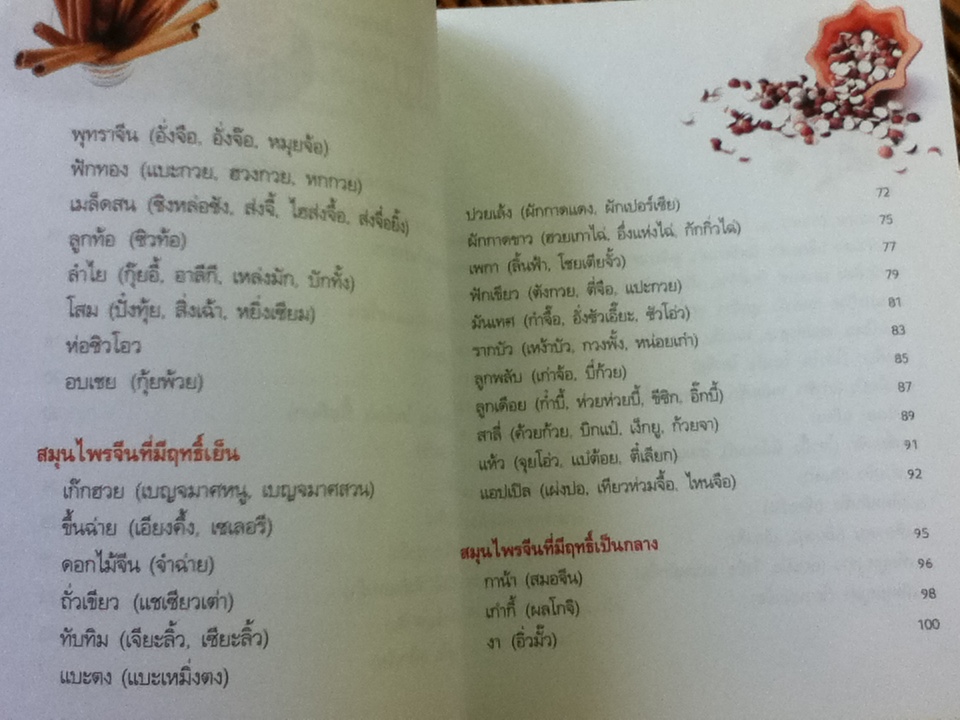 พุทราจีน (อั่งจือ, อั่งจ๊อ, หมุยจ้อ)
ฟักทอง (แบะกวย, ฮวงกวย, หกกวย)
เมล็ดสน (ชิงหล่อซัง, ส่งจี้, ไฮส่งจื้อ, ส่งจื่อยิ้ง)
ลูกท้อ (ชิวท้อ)
ลำไย (กุ๊ยอี้, อาลีกี, เหล่งมัก, บักทั้ง)
โสม (ปั่งทุ้ย, สิ่งเฉ้า, หยิ่งเซียม)
ห่อซิวโอว
อบเชย (กุ้ยพ้วย)
สมุนไพรจีนที่มีฤทธิ์เย็น
เก๊กฮวย (เบญจมาศหนู, เบญจมาศสวน)
ขึ้นฉ่าย (เอียงคึ้ง, เซเลอรี)
ดอกไม้จีน (จำฉ่าย)
ถั่วเขียว (แชเซียวเต่า)
ทับทิม (เจียะลิ้ว, เซียะลิ้ว)
แบะตง (แบะเหมิ่งตง)
ปวยเล้ง (ผักกาดแดง, ผักเปอร์เซีย) 72
ผักกาดขาว (ฮวยเกาไฉ่, อึ่งแห่งไฉ่, กักกิ่วไฉ่) 75
เพกา (ลิ้นฟ้า, โซยเตียจั้ว) 77
ฟักเขียว (ตังกวย, ตี่จือ, แปะกวย) 79
มันเทศ (กำจื้อ, อั่งซัวเอี๊ยะ, ซัวโอ่ว) 81
รากบัว (เหง้าบัว, กวงพั้ง, หน่อยเก๋า) 83
ลูกพลับ (เก่าจ้อ, บี่ก้วย) 85
ลูกเดือย (ก๋ำบี้, ห่วยห่วยบี้, ชีซิก, อิ๊กบี้) 87
สาลี่ (ค้วยก้วย, บิกแป๋, เง็กยู, ก้วยจา) 89
แห้ว (จุยโอ่ว, แบ่ต้อย, ตี๋เลียก) 91
แอปเปิล (เผ่งปอ, เทียวห่วมจื้อ, ไหนจือ) 92
สมุนไพรจีนที่มีฤทธิ์เป็นกลาง 95
กาน้า (สมอจีน) 96
เก๋ากี้ (ผลโกจิ) 98
งา (อิ่วมั้ว) 100